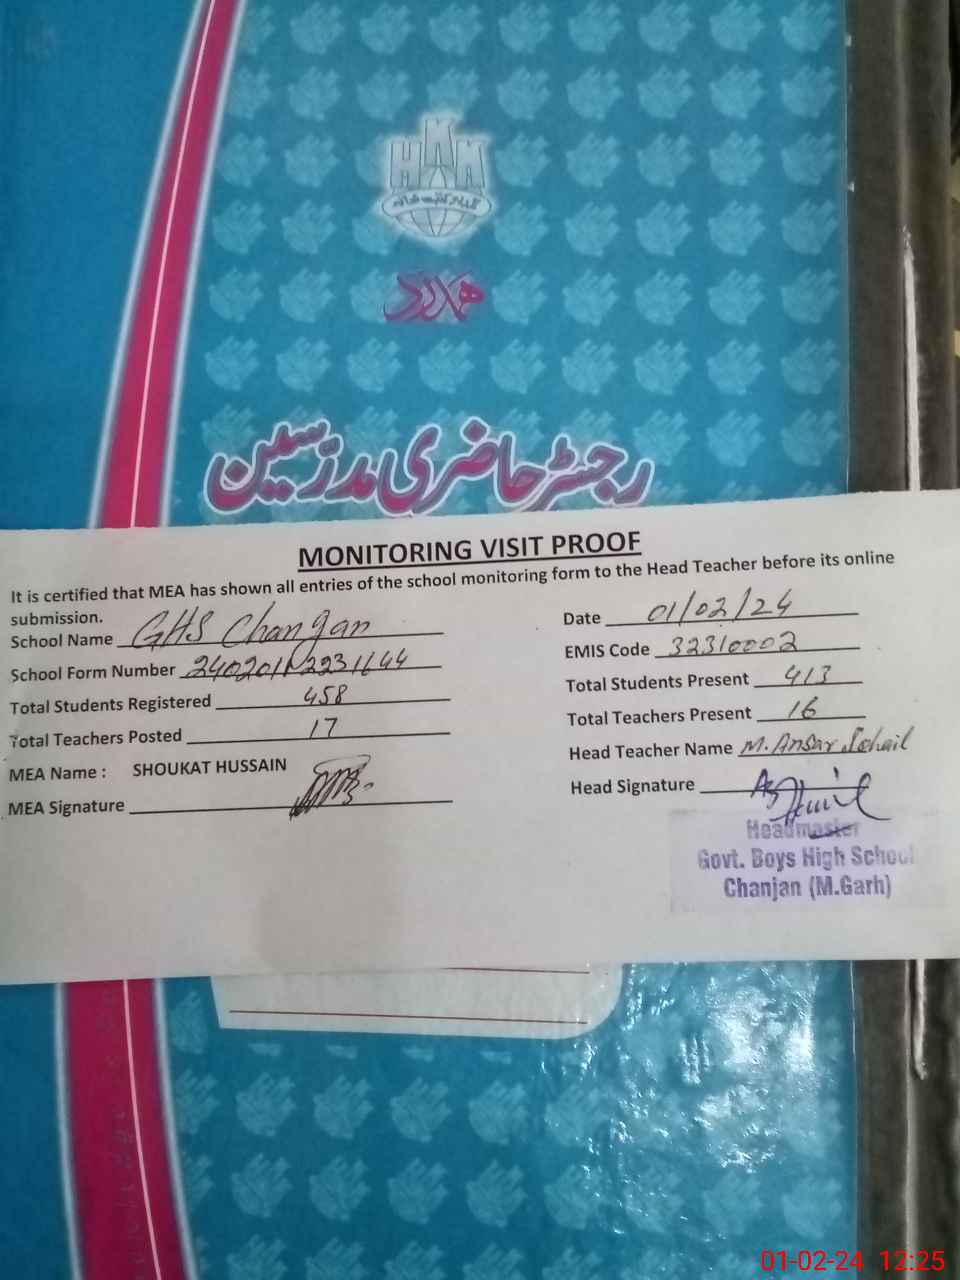 HKK
ہمدرد
رجسٹر حاضری مدرسین
MONITORING VISIT PROOF
It is certified that MEA has shown all entries of the school monitoring form to the Head Teacher before its online
submission.
School Name GHS Chanjan
Date 01/02/24
School Form Number
EMIS Code 32310002
Total Students Registered 458
Total Students Present 413
Total Teachers Posted 17
Total Teachers Present 16
MEA Name : SHOUKAT HUSSAIN
Head Teacher Name M. Ansar Sohail
MEA Signature
Head Signature
Headmaster
Govt. Boys High School
Chanjan (M.Garh)
01-02-24 12:25